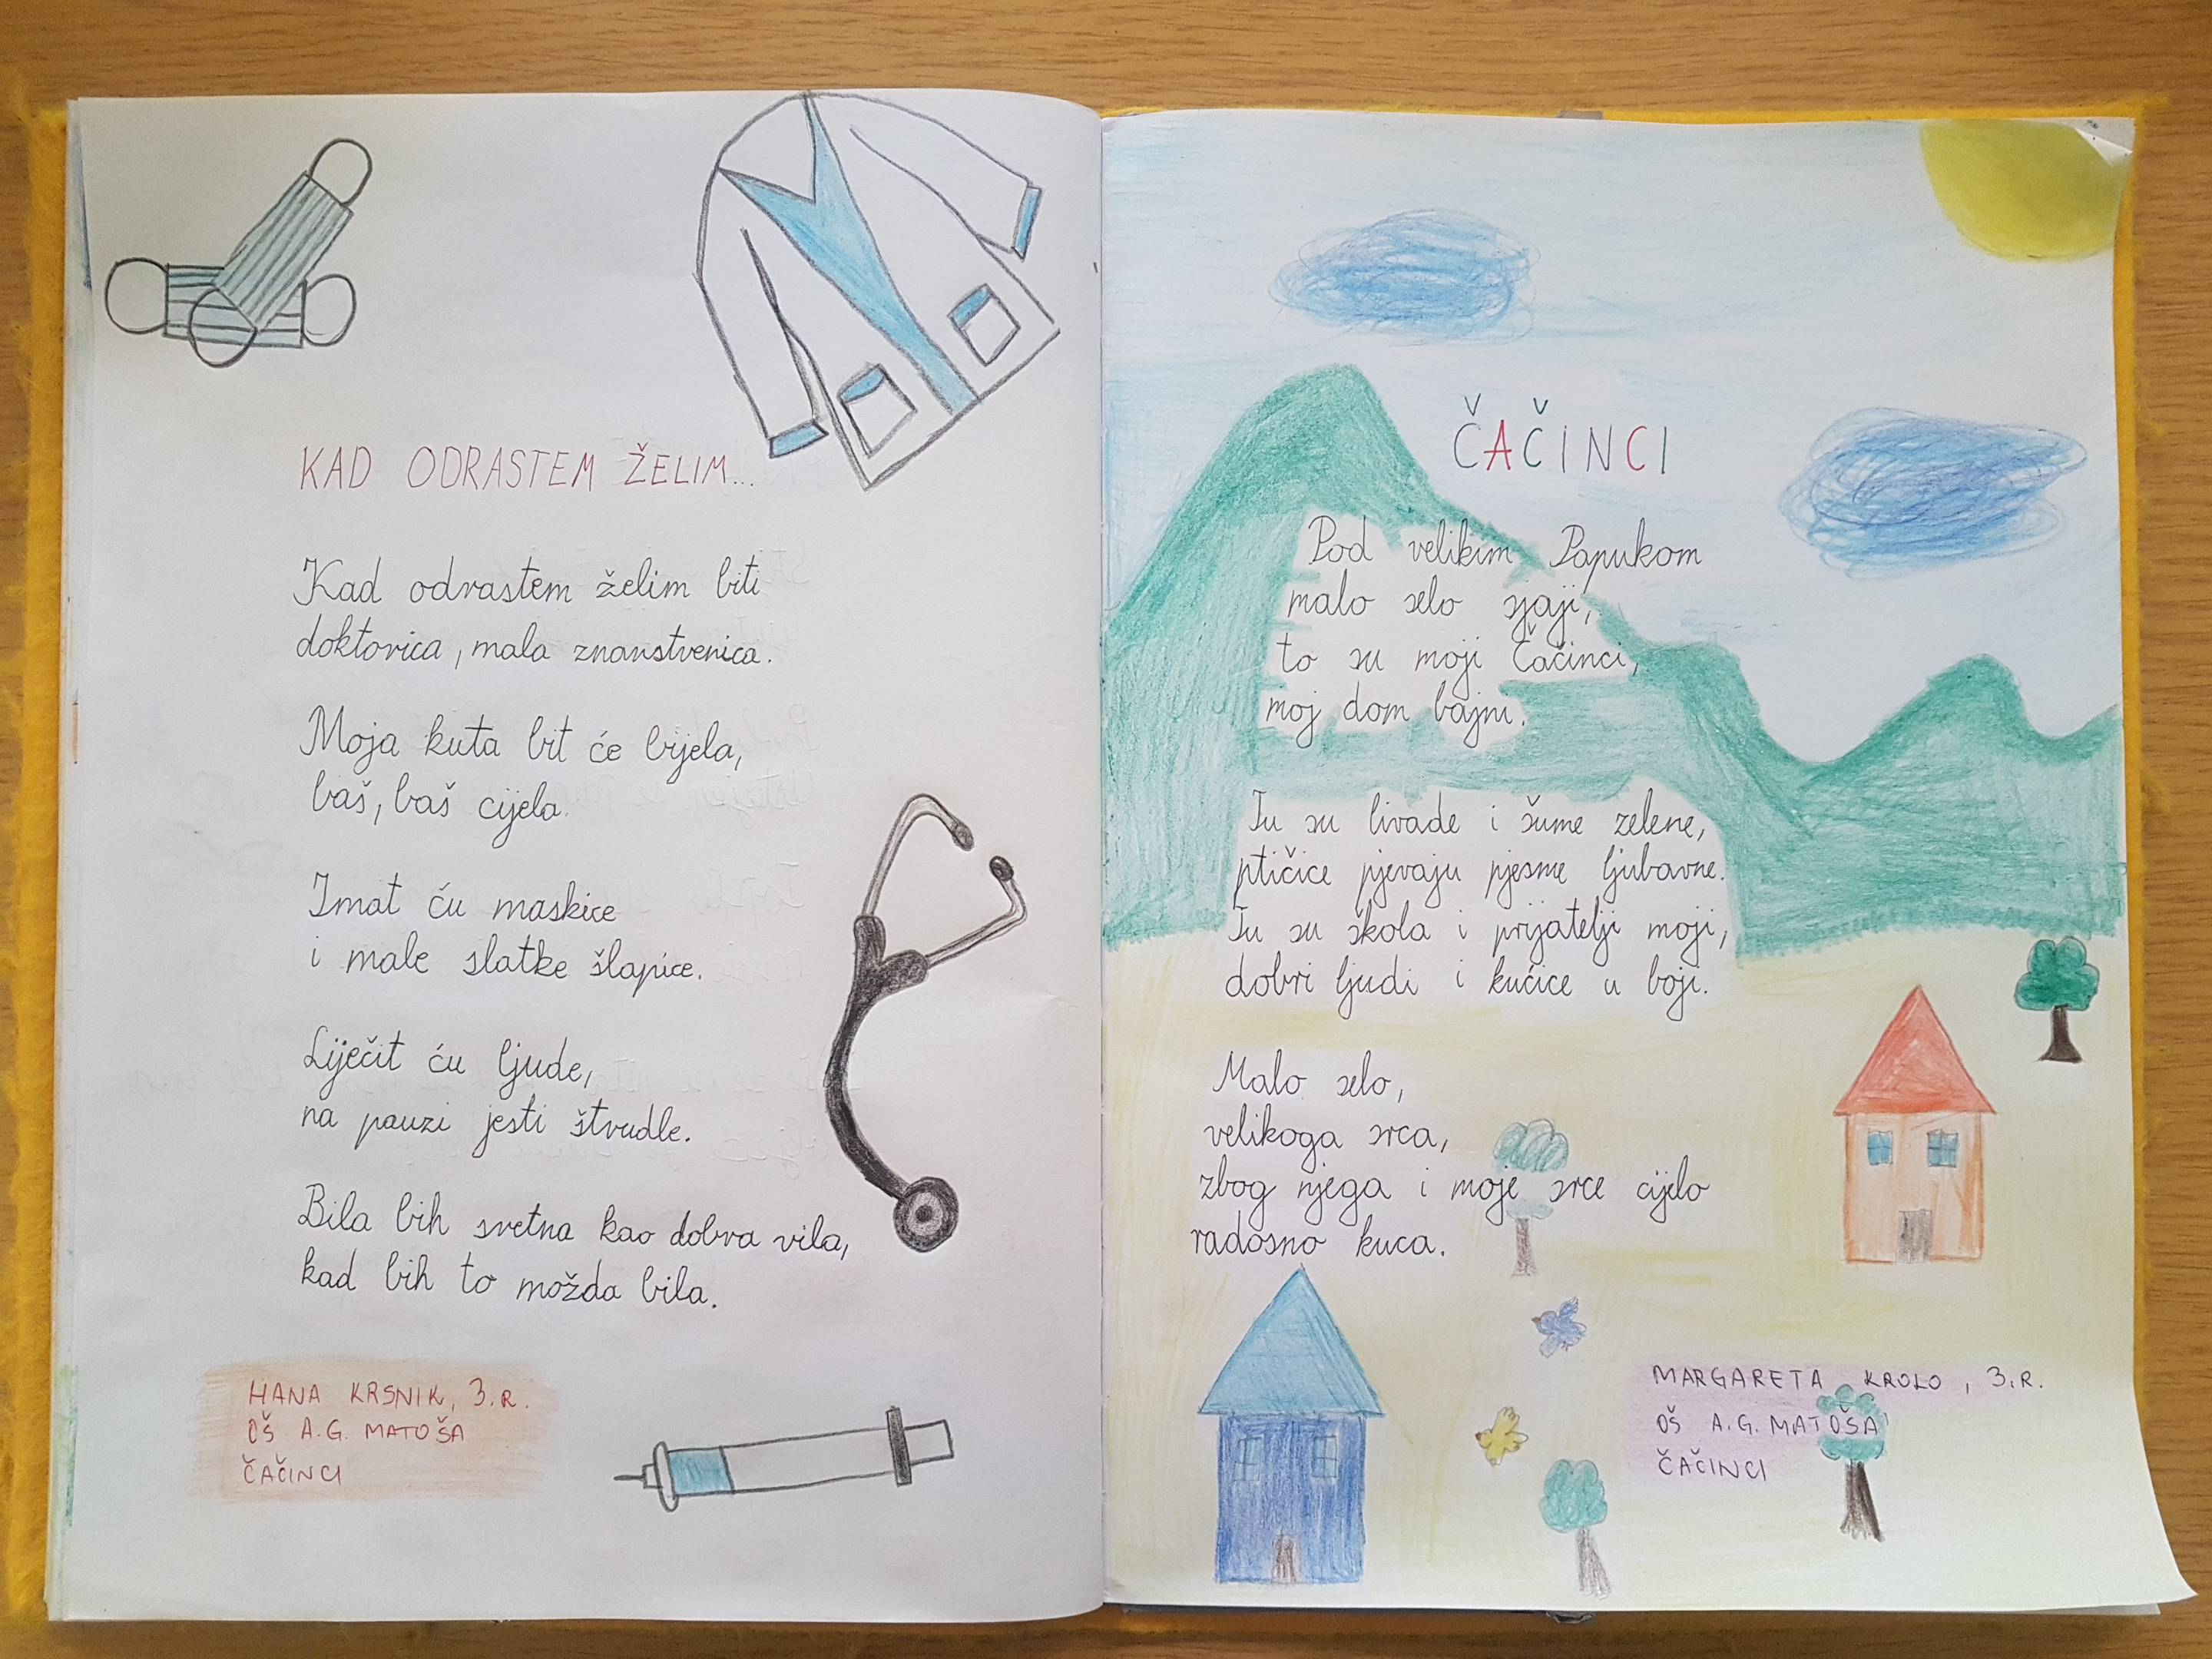 KAD ODRASTEM ŽELIM...
Kad odrastem želim biti
doktorica, mala znanstvenica.
Moja kuta bit će bijela,
baš, baš cijela.
Imat ću maskice
i male slatke šlapice.
Liječit ću ljude,
na pauzi jesti štrudle.
Bila bih sretna kao dobra vila,
kad bih to možda bila.
HANA KRSNIK, 3.R.
OŠ A.G. MATOŠA
ČAČINCI
ČAČINCI
Pod velikim Papukom
malo selo sjaji,
to su moji Čačinci,
moj dom bajni.
Tu su livade i šume zelene,
ptičice pjevaju pjesme ljubavne.
Tu su škola i prijatelji moji,
dobri ljudi i kućice u boji.
Malo selo,
velikoga srca,
zbog njega i moje srce cijelo
radosno kuca.
MARGARETA KROLO, 3.R.
OŠ A.G. MATOŠA
ČAČINCI